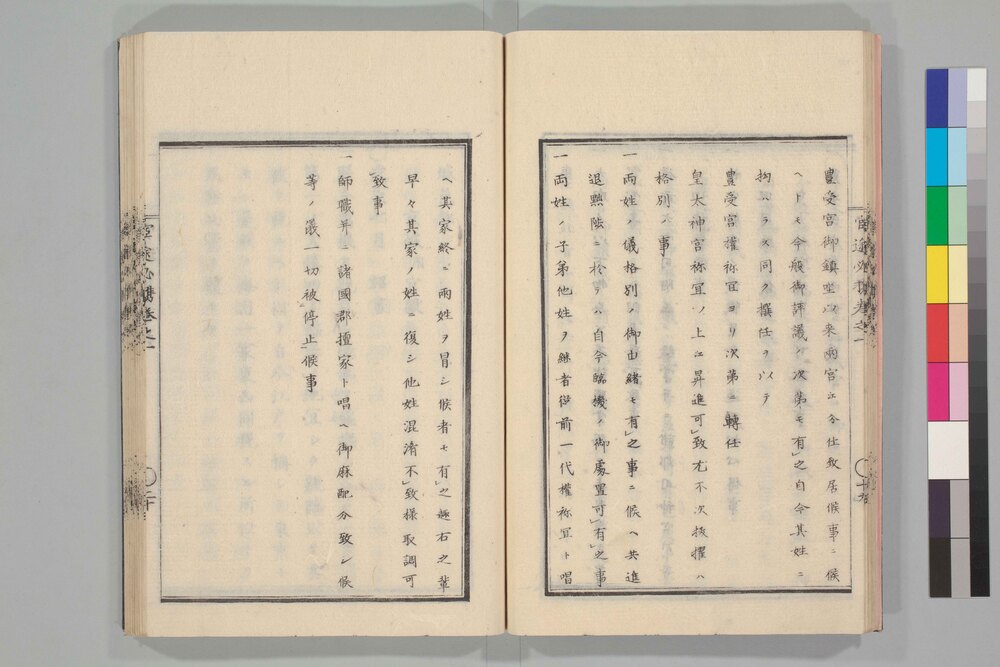 豊受宮御鎮坐以来両宮江分仕致居候事ニ候
ヘトモ今般御評議ノ次第モ有之自今其姓ニ
拘ハラス同ク撰任ヲ以テ
豊受宮権祢宜ヨリ次第ニ轉任
皇太神宮祢宜ノ上江昇進可致尤不次抜擢ハ
格別ノ事
一両姓ノ儀格別ノ御由緒モ有之事ニ候ヘ共進
退黜陟ニ於ケハ自今臨機ノ御處置可有之事
一両姓ノ子弟他姓ヲ継者従前一代権祢宜ト唱
ヘ其家終ニ両姓ヲ冒シ候者モ有之趣右之輩
早々其家ノ姓ニ復シ他姓混淆不致様取調可
致事
一師職并ニ諸國郡檀家ト唱ヘ御麻配分致シ候
等ノ儀一切被停止候事
十九
二十